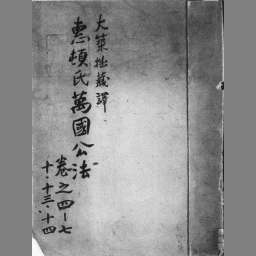 大築拙蔵譯
惠頓氏萬國公法
卷之四–七
十、十三、十四